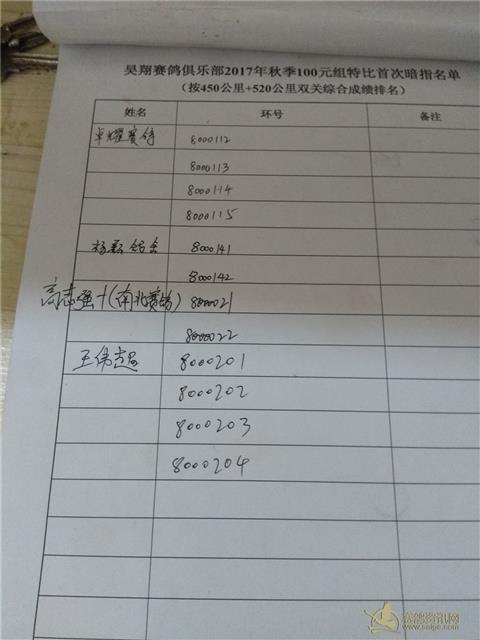 昊翔赛鸽俱乐部2017年秋季100元组特比首次暗指名单
(按450公里+520公里双关综合成绩排名)
姓名 环号 备注
卓耀赛鸽 8000112
8000113
8000114
8000115
杨磊鸽舍 8000141
8000142
高志强+(南北赛鸽) 8000021
8000022
王伟 8000201
8000202
8000203
8000204
赛鸽资讯网
www.saige.com